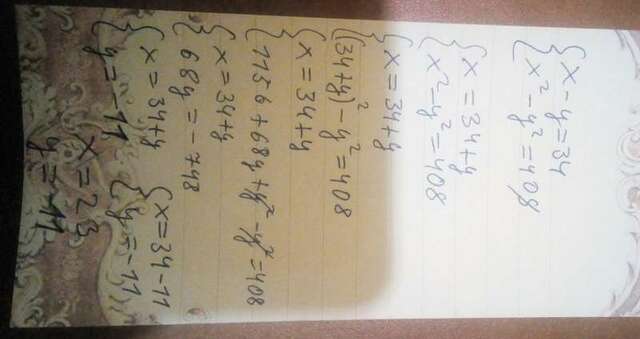 { x - y = 34
{ x² - y² = 408
{ x = 34 + y
{ x² - y² = 408
{ x = 34 + y
{ (34 + y)² - y² = 408
{ x = 34 + y
{ 1156 + 68y + y² - y² = 408
{ x = 34 + y
{ 68y = -748
{ x = 34 + y { x = 34 - 11
{ y = -11 { y = -11
x = 23
y = -11